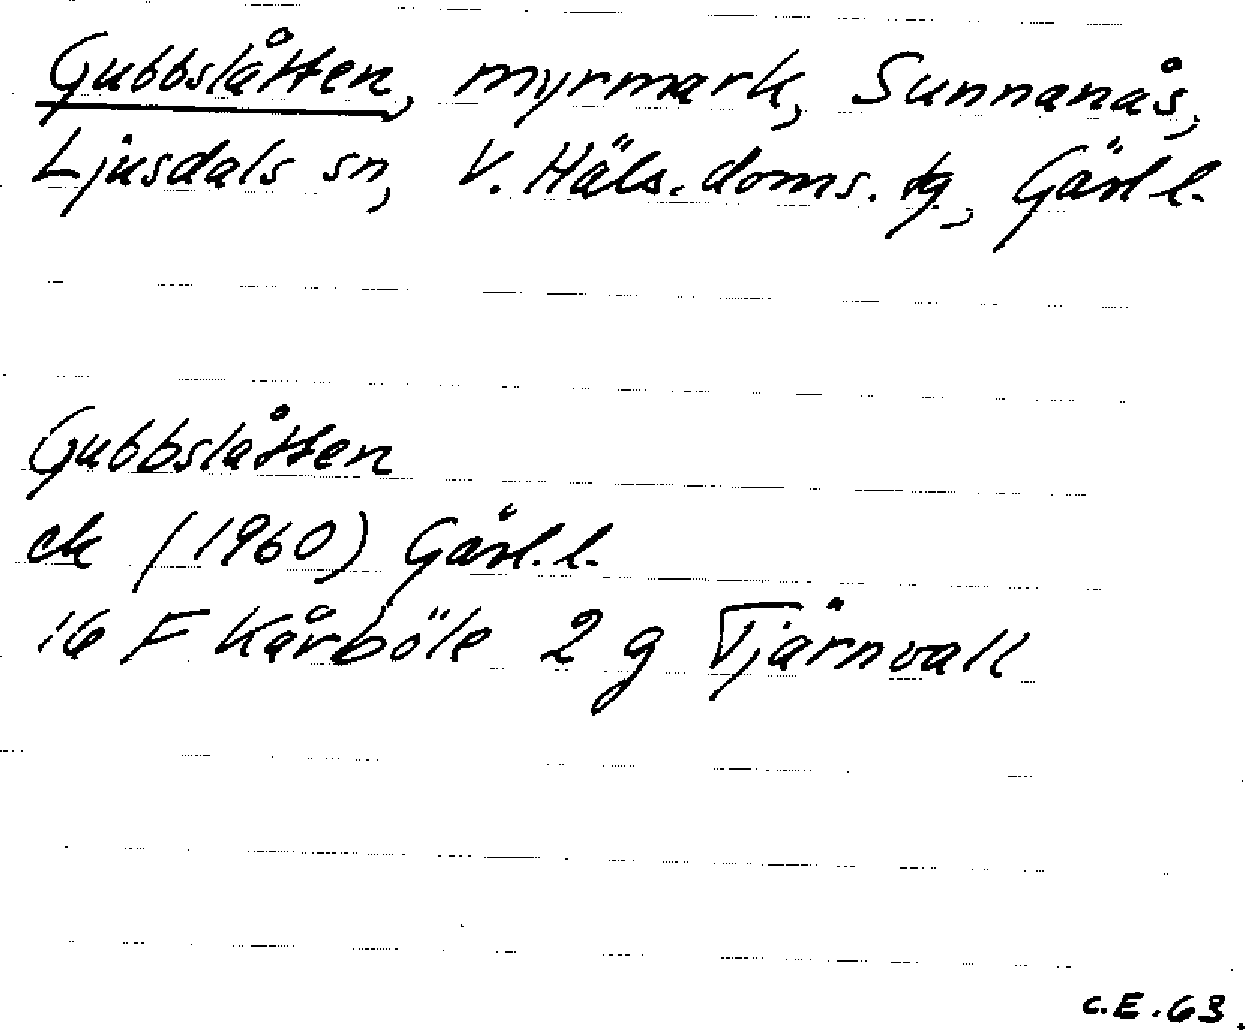 Gubbslåtten, myrmark, Sunnanås,
Ljusdals sn, V. Häls. doms. tg, Gävl l.
Gubbslåtten
ek (1960) Gävl. l.
16 F Kårböle 2 g Tjärnvall
C.E. 63.